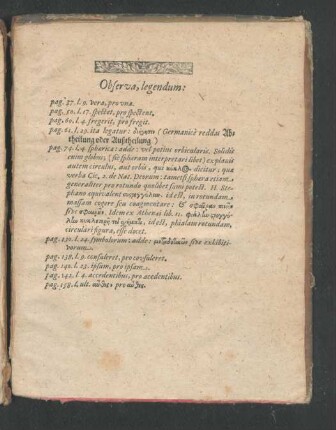 Observa, legendum:
pag. 37. l. 9. vera, pro una.
pag. 50. l. 17. spectat, pro spectent.
pag. 60. l. 4. fregerit, pro fregit.
pag. 61. l. 23. ita legatur: (Germanicè reddas Ab-
theilung oder Außtheilung)
pag. 74. l. 4 spherica: adde: vel potius orbiculariæ. Solidū
enim globus (sic sphæram interpretari libet) è planis
autem circulus, aut orbis, qui κυκλος dicitur; qua
verba Cic. 2. de Nat. Deorum: tametsi sphæra etiam
generaliter pro rotundo quolibet sumi potest. H. Ste-
phano æquivalent idest, in rotundam
massam cogere seu coagmentare: &
sive Idem ex Athenæi lib. 11.
idest, phialam rotundam,
circulari figura, esse docet.
pag. 130. l. 24. symbolorum: adde: sive exhibiti-
vorum.
pag. 139. l. 9. consuleret, pro consuleret.
pag. 141. l. 23. ipsum, pro ipsam.
pag. 142. l. 4. accedentibus, pro accedentibus.
pag. 158. l. ult. pro